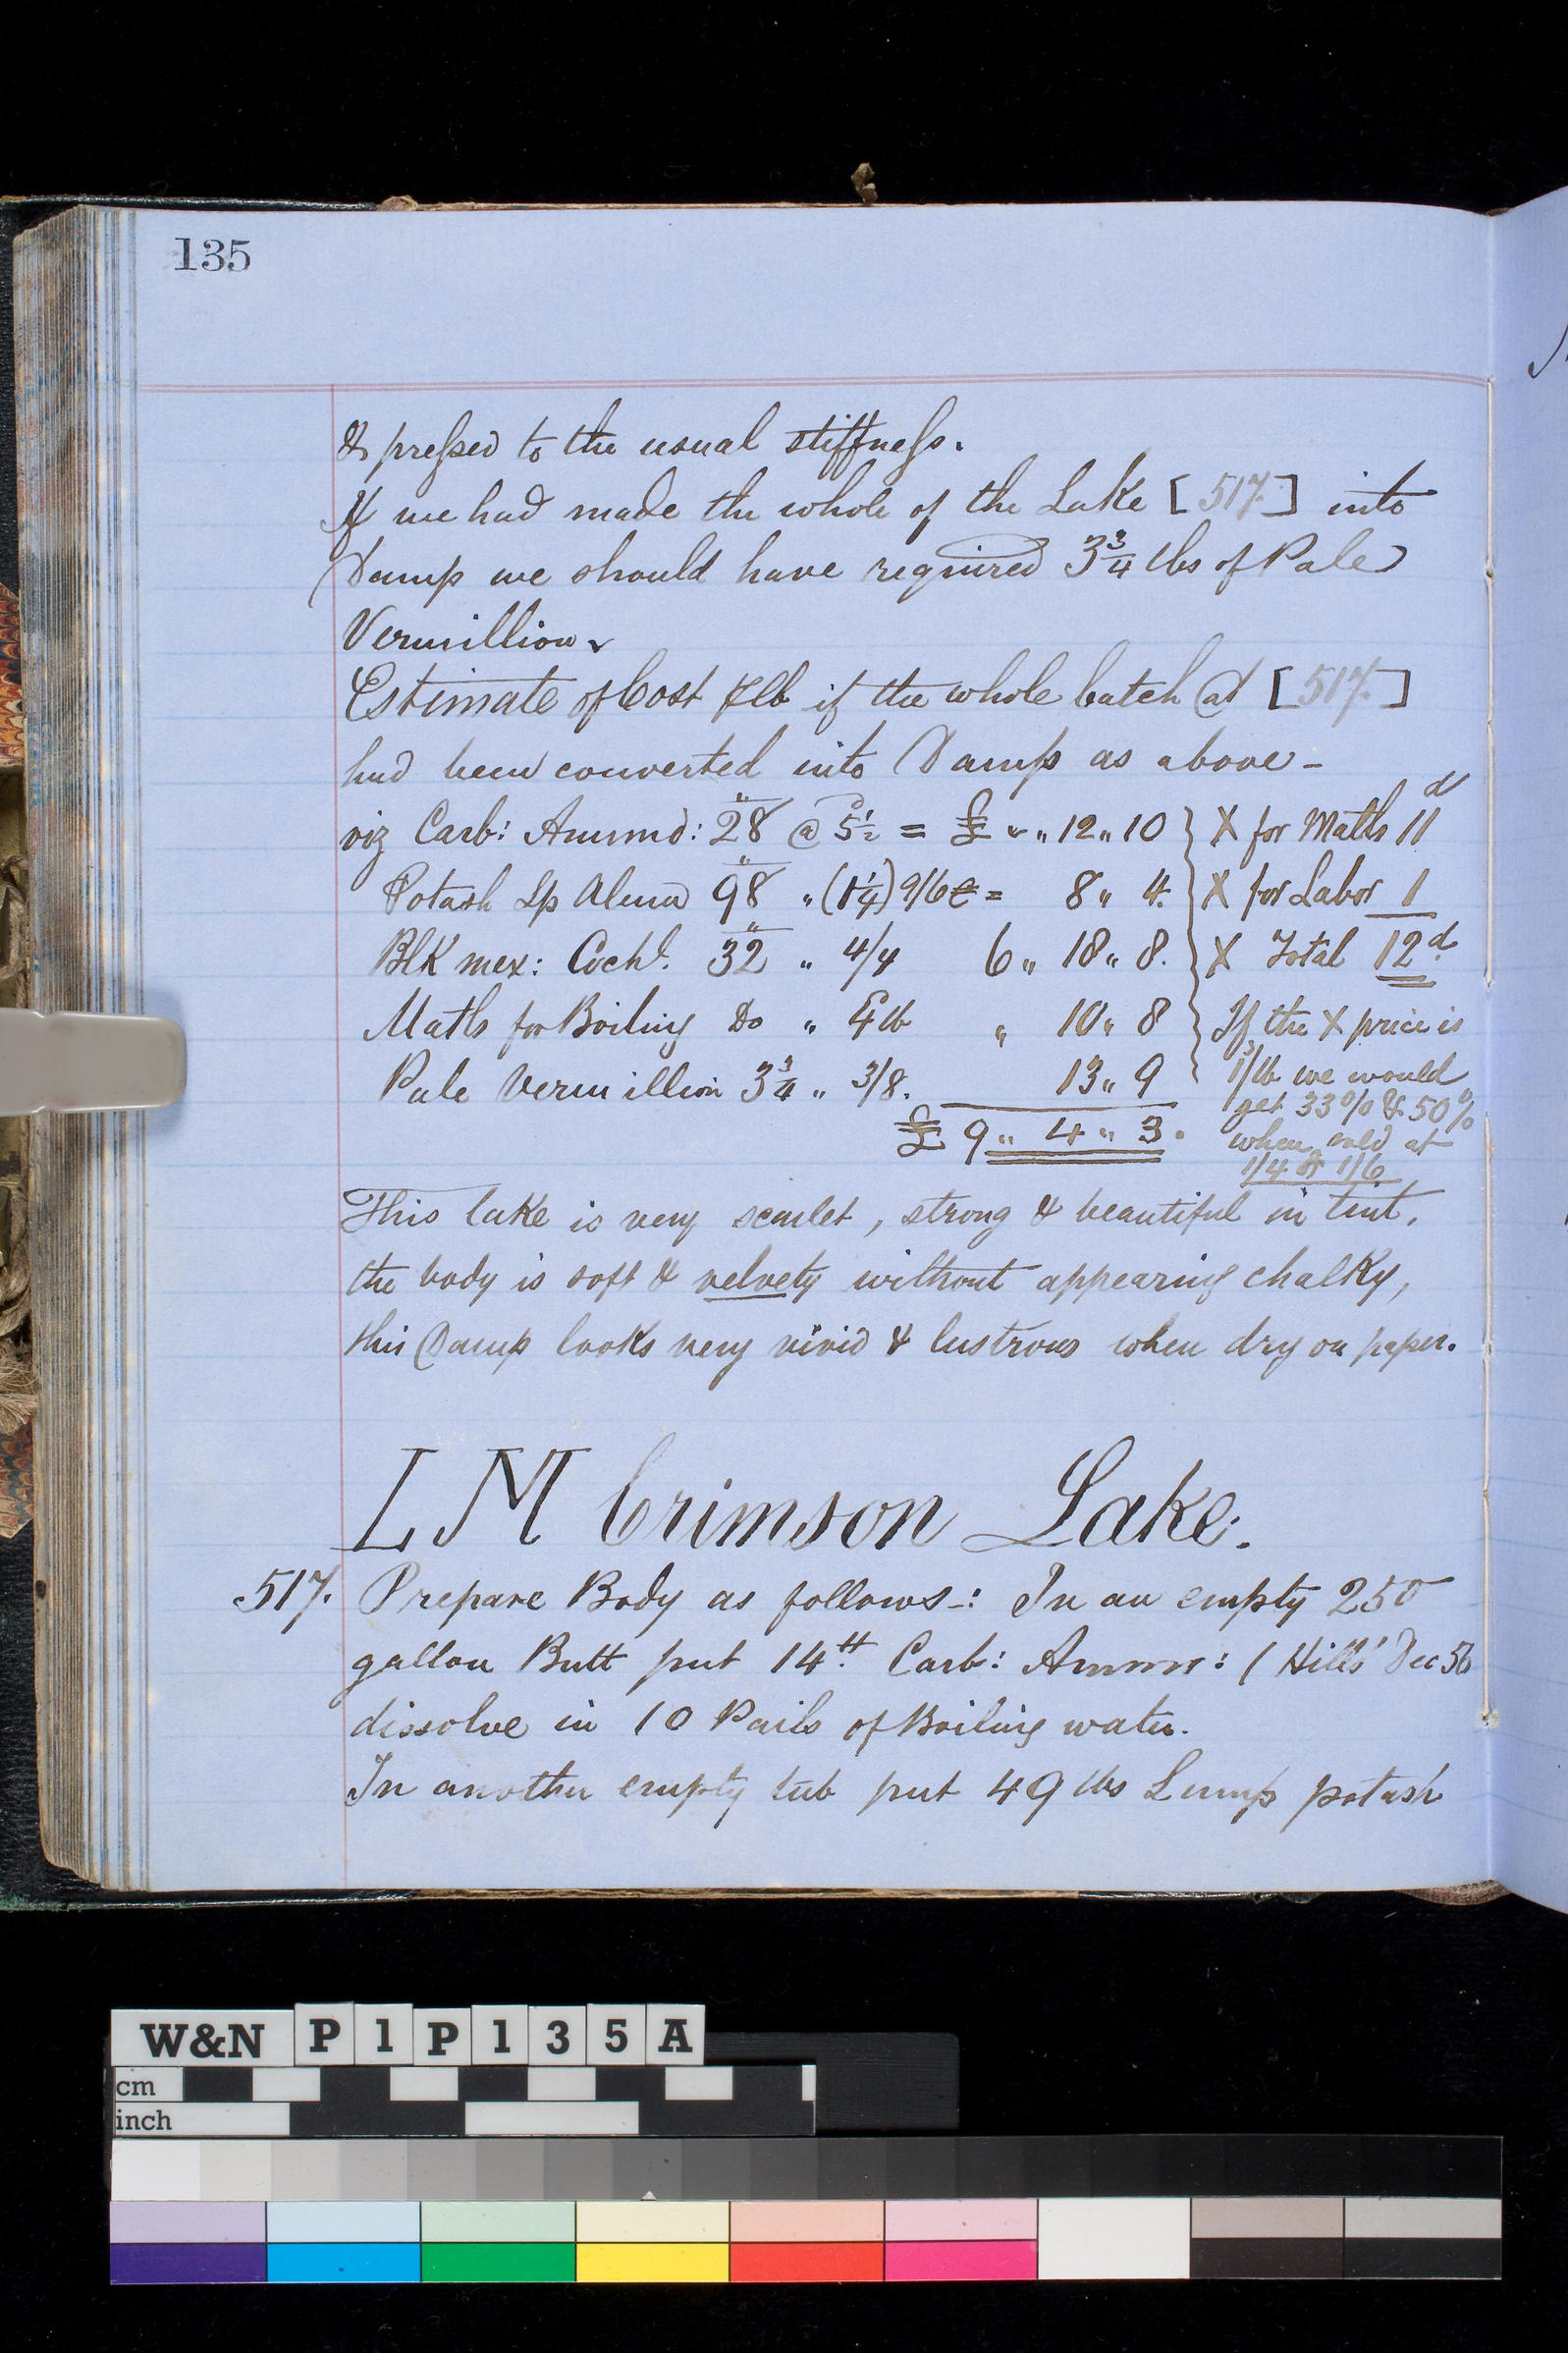 135
& pressed to the usual stiffness.
If we had made the whole of the Lake [517.] into
Damp we should have required 3¾ lbs of Pale
Vermillion.
Estimate of Cost ℔ lb if the whole batch at [517.]
had been converted into Damp as above -
viz Carb: Ammd: 28 @ 5½ = £ " " 12 " 10 } X for Matls 11d
Potash Lp Alum 98 " (1¼) 9/6 = 8 " 4. } X for Labor 1
Blk mex: Cochl. 32 " 4/4 6 " 18 " 8. } X Total 12d
Matls for Boiling Do " 4 lb " 10 " 8 } If the X price is
Pale Vermillion 3¾ " 3/8. 13 " 9 1/lb we would
get 33% & 50%
£ 9 " 4 " 3. when sold at
1/4 or 1/6
This lake is very scarlet, strong & beautiful in tint,
the body is soft & velvety without appearing chalky,
this Damp looks very vivid & lustrous when dry on paper.
LM Crimson Lake.
517. Prepare Body as follows-: In an empty 250
gallon Butt put 14 lb. Carb: Ammn: (Hills' Dec 56
dissolve in 10 Pails of Boiling water.
In another empty tub put 49 lbs Lump potash
W&N P1P135A
cm
inch